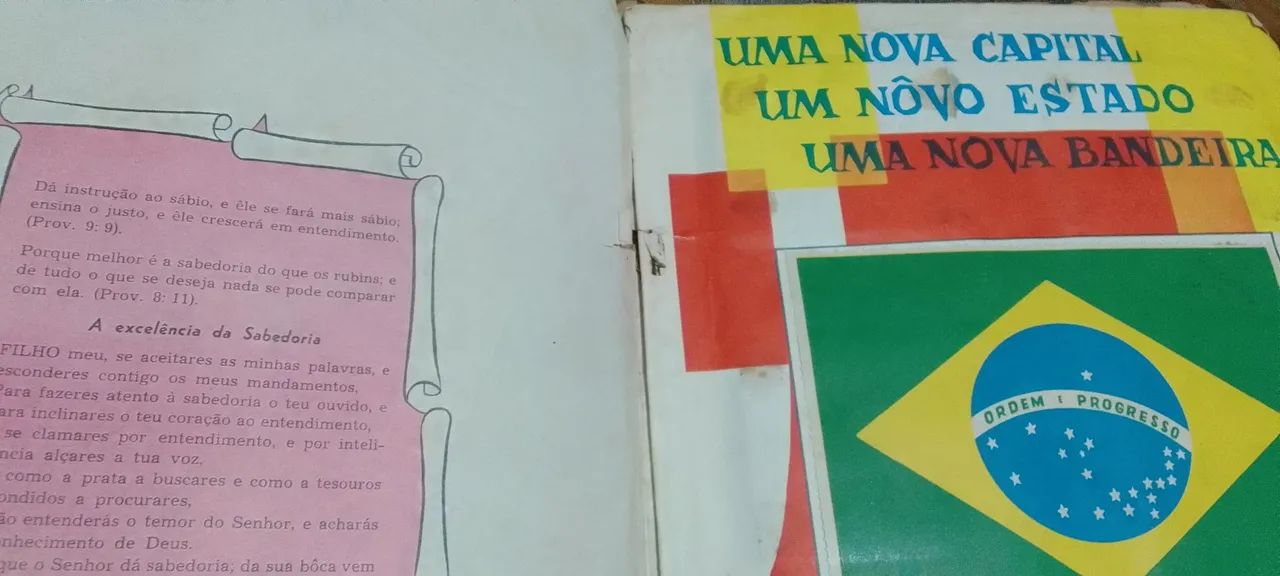 Dá instrução ao sábio, e êle se fará mais sábio;
ensina o justo, e êle crescerá em entendimento.
(Prov. 9: 9).
Porque melhor é a sabedoria do que os rubins; e
de tudo o que se deseja nada se pode comparar
com ela. (Prov. 8: 11).
A excelência da Sabedoria
FILHO meu, se aceitares as minhas palavras, e
esconderes contigo os meus mandamentos,
Para fazeres atento à sabedoria o teu ouvido, e
para inclinares o teu coração ao entendimento,
se clamares por entendimento, e por inteli-
ncia alçares a tua voz,
como a prata a buscares e como a tesouros
ondidos a procurares,
ão entenderás o temor do Senhor, e acharás
nhecimento de Deus.
que o Senhor dá sabedoria; da sua bôca vem
UMA NOVA CAPITAL
UM NÔVO ESTADO
UMA NOVA BANDEIRA
ORDEM E PROGRESSO